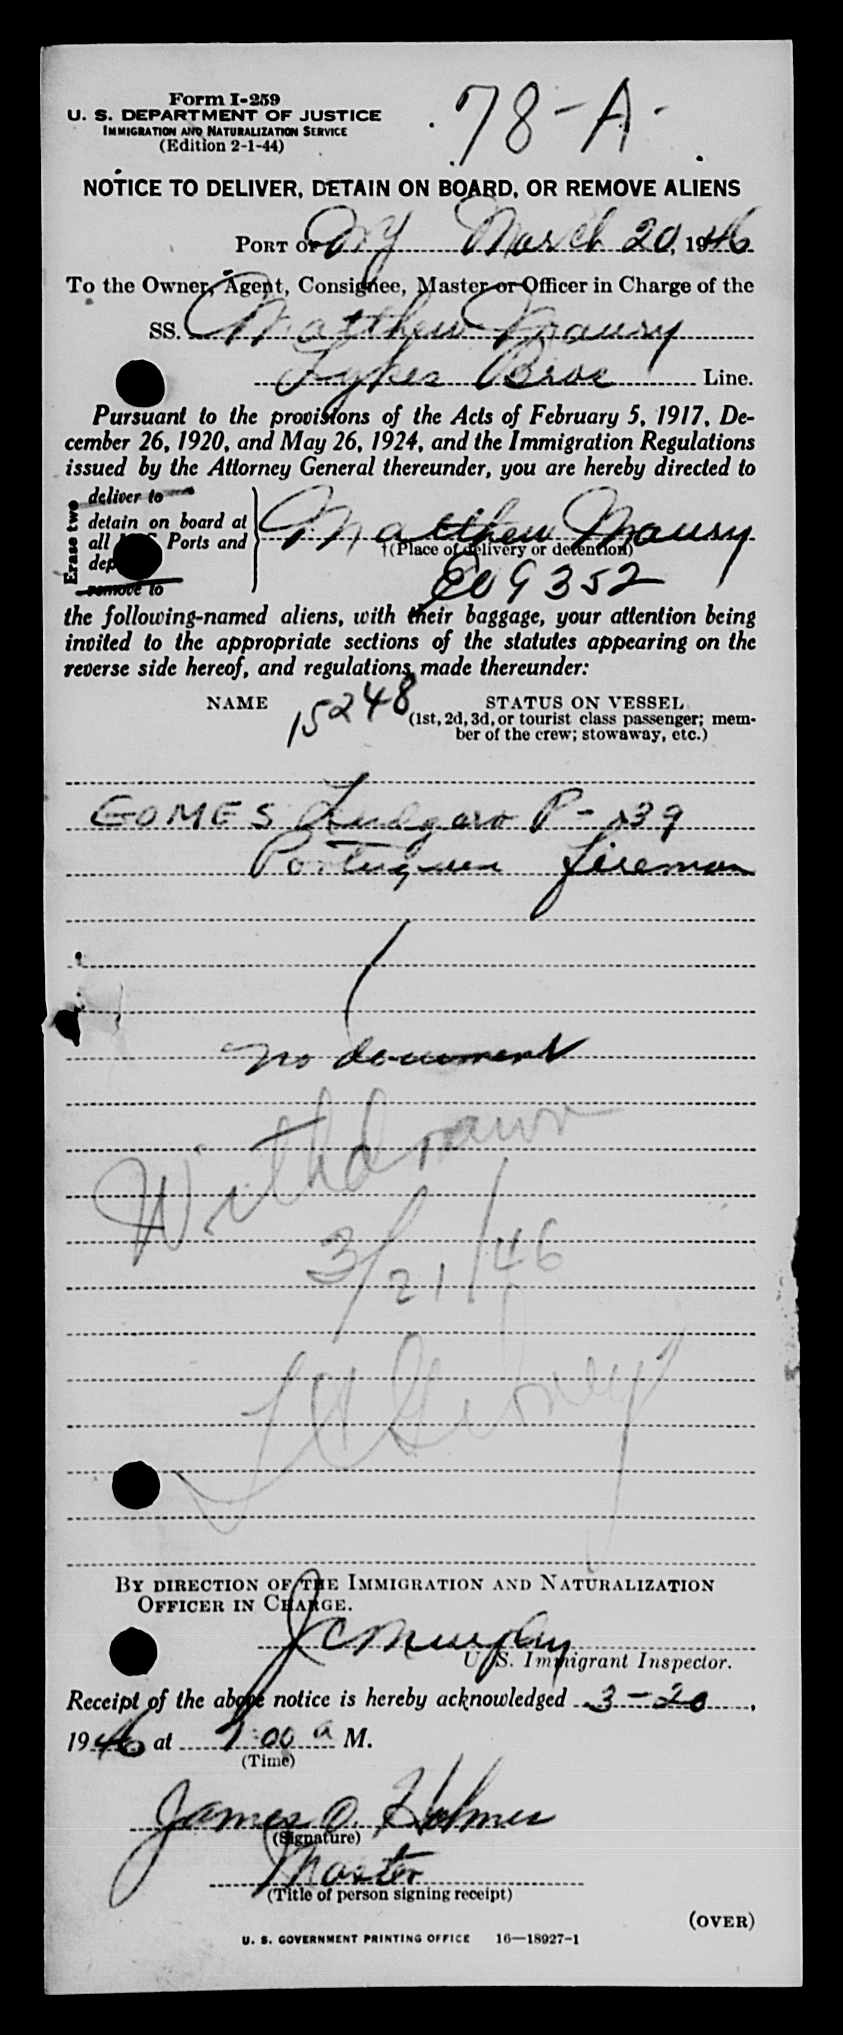 Form I-259
U. S. DEPARTMENT OF JUSTICE
IMMIGRATION AND NATURALIZATION SERVICE
(Edition 2-1-44)
78-A-
NOTICE TO DELIVER, DETAIN ON BOARD, OR REMOVE ALIENS
PORT OF NY March 20, 1946
To the Owner, Agent, Consignee, Master or Officer in Charge of the
SS. Matthew Maury
Lykes Bros Line.
Pursuant to the provisions of the Acts of February 5, 1917, De-
cember 26, 1920, and May 26, 1924, and the Immigration Regulations
issued by the Attorney General thereunder, you are hereby directed to
Erase two
deliver to
detain on board at
all Ports and
remove to
Matthew Maury
†(Place of delivery or detention)
9352
the following-named aliens, with their baggage, your attention being
invited to the appropriate sections of the statutes appearing on the
reverse side hereof, and regulations made thereunder:
NAME 15248 STATUS ON VESSEL
(1st, 2d, 3d, or tourist class passenger; mem-
ber of the crew; stowaway, etc.)
GOMES P- 39
Portuguese fireman
no document
Withdrawn
3/21/46
BY DIRECTION OF THE IMMIGRATION AND NATURALIZATION
OFFICER IN CHARGE.
J C Murphy
U. S. Immigrant Inspector.
Receipt of the above notice is hereby acknowledged 3-20,
1946 at 1:00 a M.
(Time)
James O. Holmes
(Signature)
Master
(Title of person signing receipt)
(OVER)
U. S. GOVERNMENT PRINTING OFFICE 16—18927-1